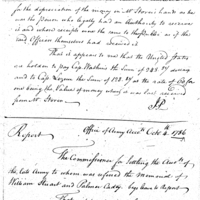 for the depreciation of the money in Mr Storer's hands as he
was the person who legally had no authority to receive
it and whose receipts were the same to the public as if the
said Officer themselves had received it
That it appears to me that the United States
are holden to pay Capt Watkins the Sum of 223 money
and to Capt the Sum of 123. at the rate of
being the Value of money when it was last received
from Mr Storer.
JP
Report Office of Army Accots Octo 4. 1786
The Commissioner for settling the Accots of
the late Army to whom was referred the Memorial of
William Stuart and Palmer Cady begs leave to Report